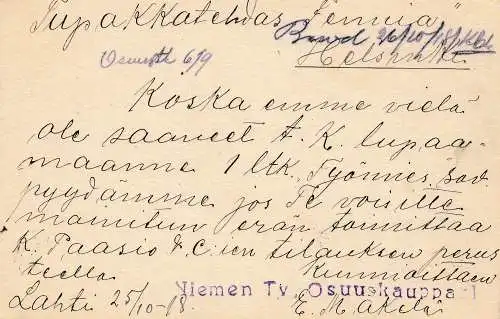 Tupakkatehdas "Fennia"
Besvd 26/10/18
Osuusk 6/9
Helsinki
Koska emme vielä
ole saaneet A. K. lupaa-
maanne 1 ltk. Työmies, sav.
pyydämme jos Te voisitte
mainitun erän toimittaa
K. Paasio & C:ien tilauksen perus
teella
Kunnioittaen
Niemen Tv. Osuuskauppa
Lahti 25/10-18
E. Mäkelä